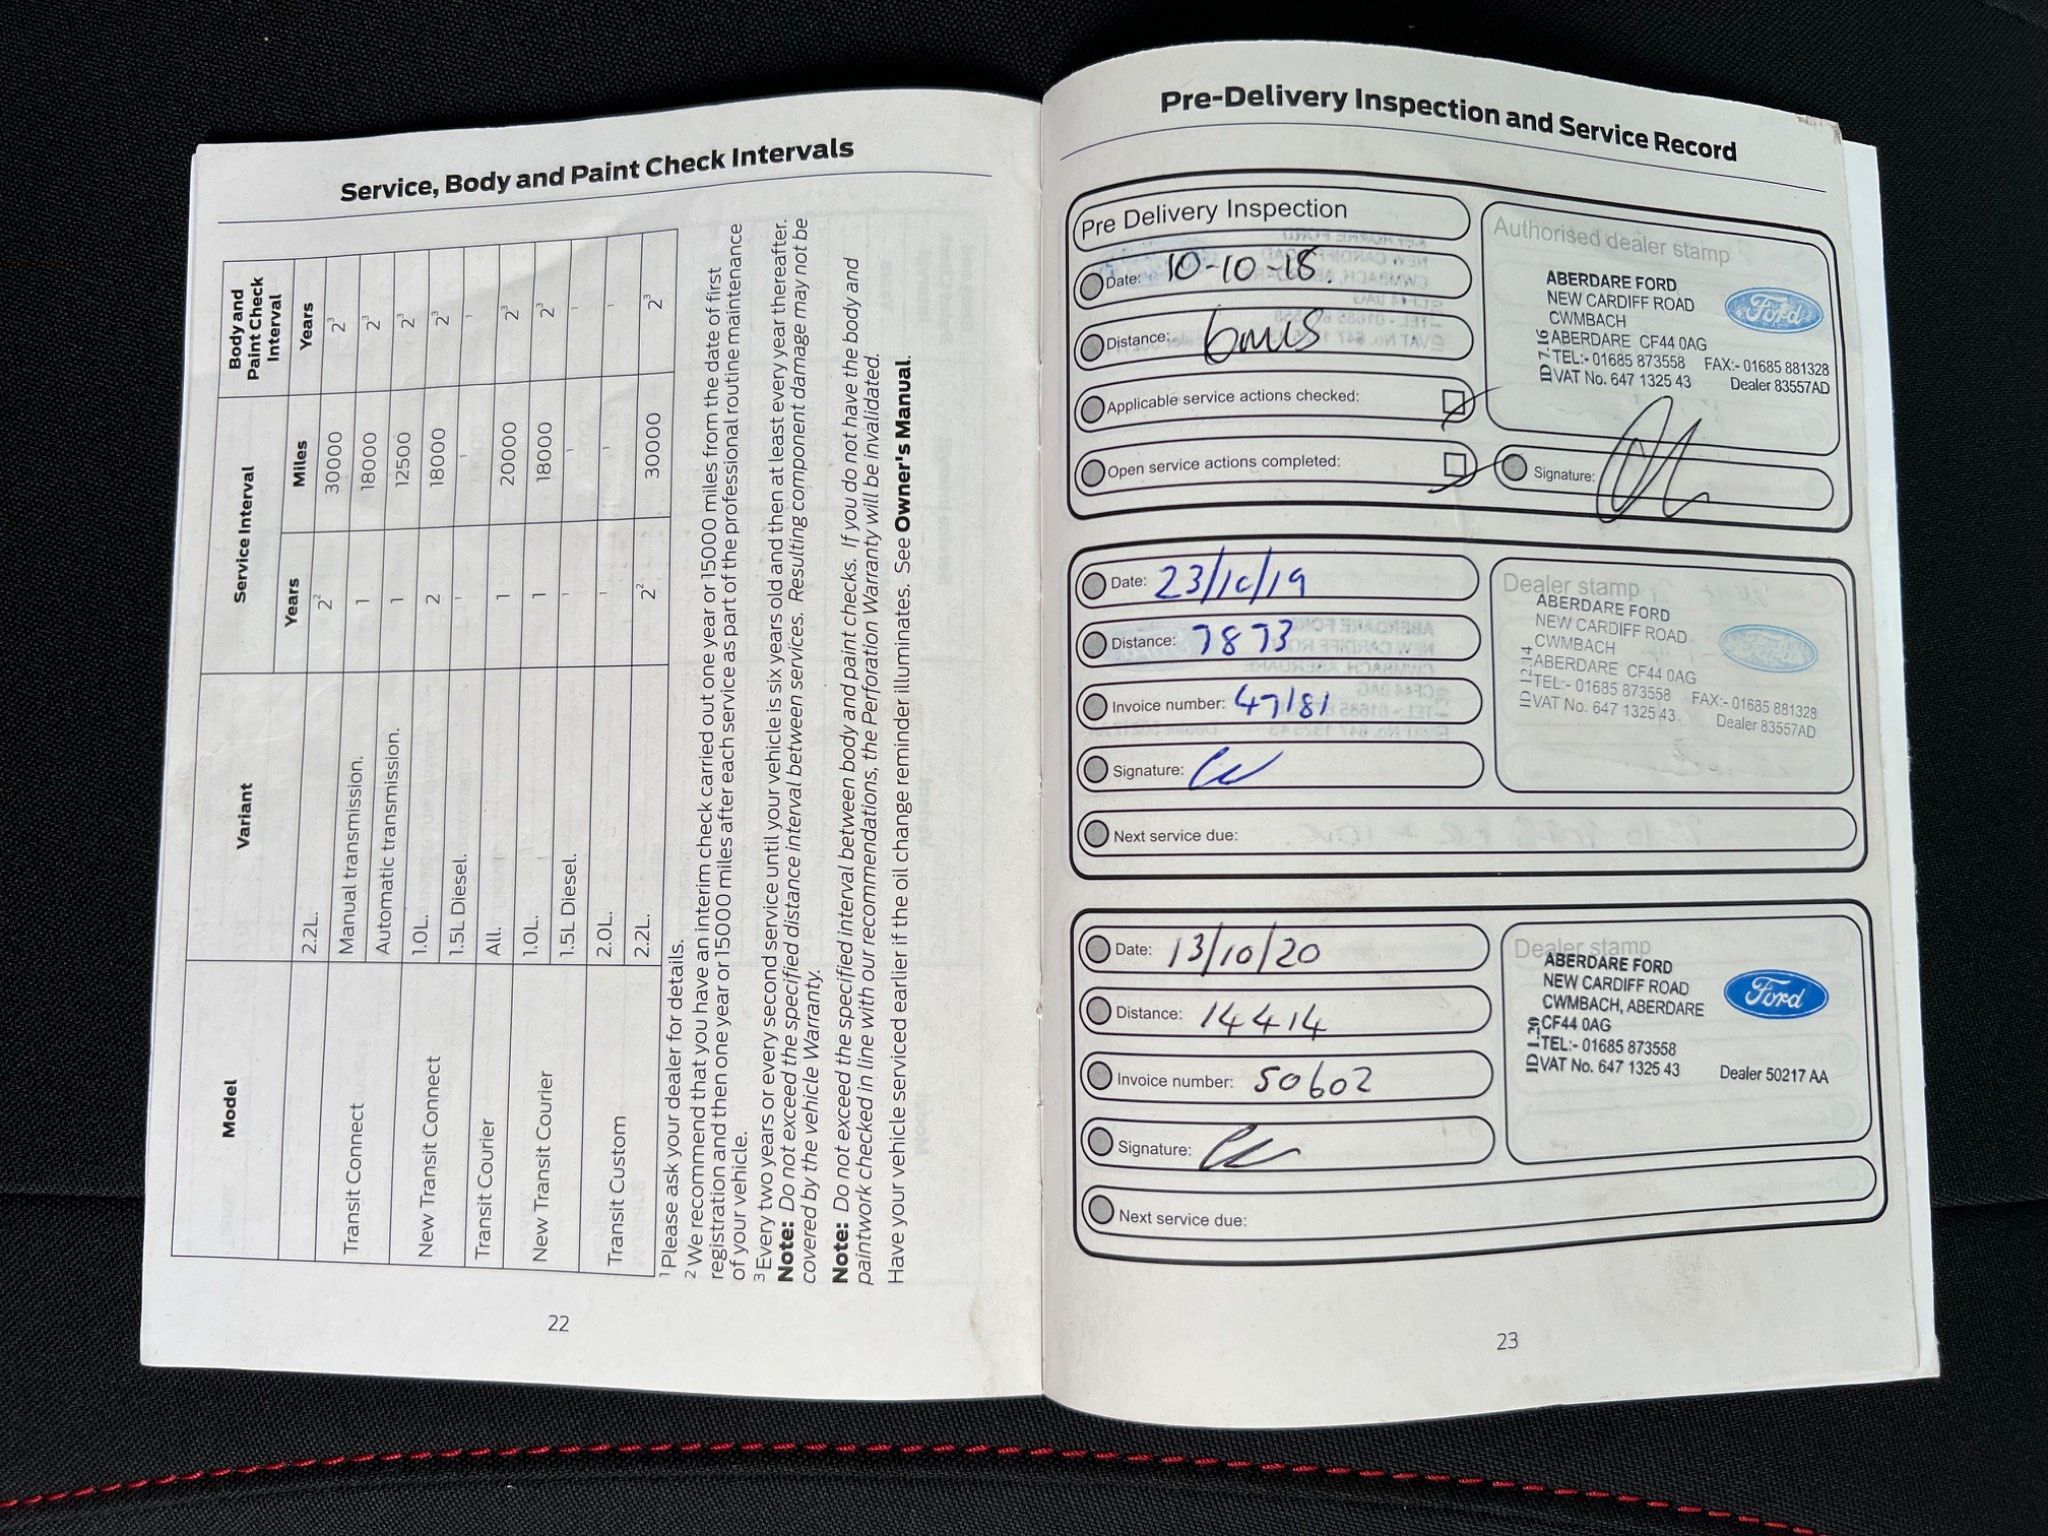 Service, Body and Paint Check Intervals
Model Variant Service Interval Body and Paint Check Interval
Years Miles Years
2.2L. 2² 30000 2³
Transit Connect Manual transmission. 1 18000 2³
Automatic transmission. 1 12500 2³
New Transit Connect 1.0L. 2 18000 2³
1.5L Diesel. ¹ ¹ ¹
Transit Courier All. 1 20000 2³
New Transit Courier 1.0L. 1 18000 2³
1.5L Diesel. ¹ ¹ ¹
Transit Custom 2.0L. ¹ ¹ ¹
2.2L. 2² 30000 2³
¹ Please ask your dealer for details.
² We recommend that you have an interim check carried out one year or 15000 miles from the date of first
registration and then one year or 15000 miles after each service as part of the professional routine maintenance
of your vehicle.
³ Every two years or every second service until your vehicle is six years old and then at least every year thereafter.
Note: Do not exceed the specified distance interval between services. Resulting component damage may not be
covered by the vehicle Warranty.
Note: Do not exceed the specified interval between body and paint checks. If you do not have the body and
paintwork checked in line with our recommendations, the Perforation Warranty will be invalidated.
Have your vehicle serviced earlier if the oil change reminder illuminates. See Owner's Manual.
22
Pre-Delivery Inspection and Service Record
Pre Delivery Inspection
Date: 10-10-18.
Distance: 6mls
Applicable service actions checked:
Open service actions completed:
Authorised dealer stamp
ABERDARE FORD
NEW CARDIFF ROAD
CWMBACH
ABERDARE CF44 0AG
TEL:- 01685 873558 FAX:- 01685 881328
VAT No. 647 1325 43 Dealer 83557AD
ID 7.16
Ford
Signature:
Date: 23/10/19
Distance: 7873
Invoice number: 47181
Signature:
Next service due:
Dealer stamp
ABERDARE FORD
NEW CARDIFF ROAD
CWMBACH
ABERDARE CF44 0AG
TEL:- 01685 873558 FAX:- 01685 881328
VAT No. 647 1325 43 Dealer 83557AD
ID 12.14
Ford
Date: 13/10/20
Distance: 14414
Invoice number: 50602
Signature:
Next service due:
Dealer stamp
ABERDARE FORD
NEW CARDIFF ROAD
CWMBACH, ABERDARE
CF44 0AG
TEL:- 01685 873558
VAT No. 647 1325 43 Dealer 50217 AA
ID 1-20
Ford
23